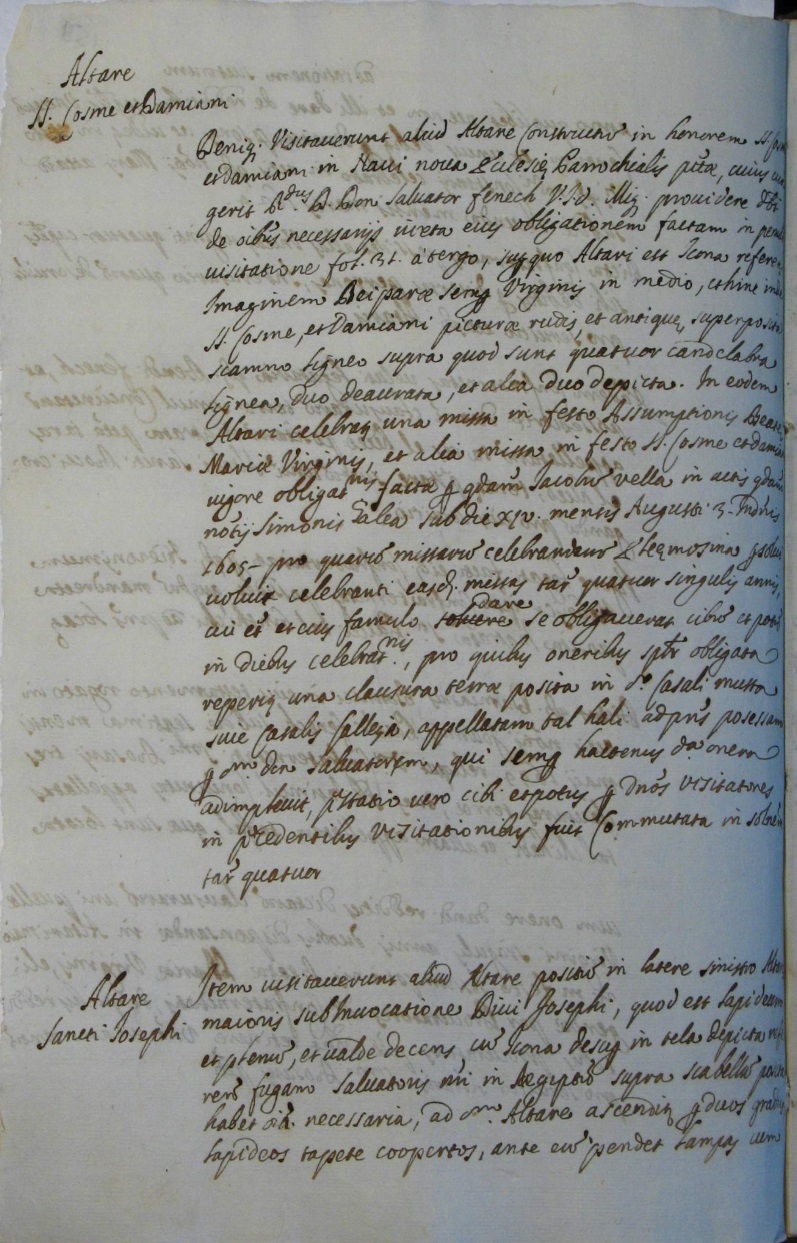 Altare
SS. Cosme et Damiani
Deniq. Visitaverunt aliud Altare Constructū in honorem SS.
et Damiani in Navi nova Ecclesię Parrochialis ptæ, cuius
gerit Rdus D. Don Salvator fenech V.J.d. Miq. providere
de oibus necessarijs iuxta eius obligationem factam in
visitatione fol. 31. à tergo, super quo Altari est Icona
Imaginem Deiparæ semp Virginis in medio, et hinc inde
SS. Cosme, et Damiani picturæ rudis, et antiquę, superposita
scamno ligneo supra quod sunt quatuor candelabra
lignea, duo deaurata, et alia duo depicta. In eodem
Altari celebraț una missa in festo Assumptionis Beate
Mariæ Virginis, et alia missa in festo SS. Cosme et Damiani
vigore obligatnis factæ p qdam Jacobū vella in actis qdam
notij Simonis Galea sub die XIV. mensis Augusti 3. Indnis
1605 - pro quarū missarū celebrandarū Elęmosina
voluit celebranti easd. missas tar quatuor singulis annis,
cui et eius famulo dare se obligaverat cibū et potū
in diebus celebratnis, pro quibus oneribus sptr obligata
reperiț una clausura terræ posita in do Casali musta
sive Casalis Calleja, appellatam tal hali ad prns possessam
p dm don Salvatorem, qui semp hactenus da onera
adimplevit, pstatio vero cibi et potus p dnos Visitatores
in pcedentibus Visitationibus fuit Commutata in
tar quatuor
Altare
Sancti Josephi
Item visitaverunt aliud Altare positū in latere sinistro
maioris sub Invocatione Divi Josephi, quod est lapideum
et plenū, et valde decens cū Icona desup in tela depicta
fugam Salvatoris nri in Aegiptū supra scabellū
habet oia necessaria, ad dm Altare ascendiț p duos gradus
lapideos tapete coopertos, ante eū pendet Lampas